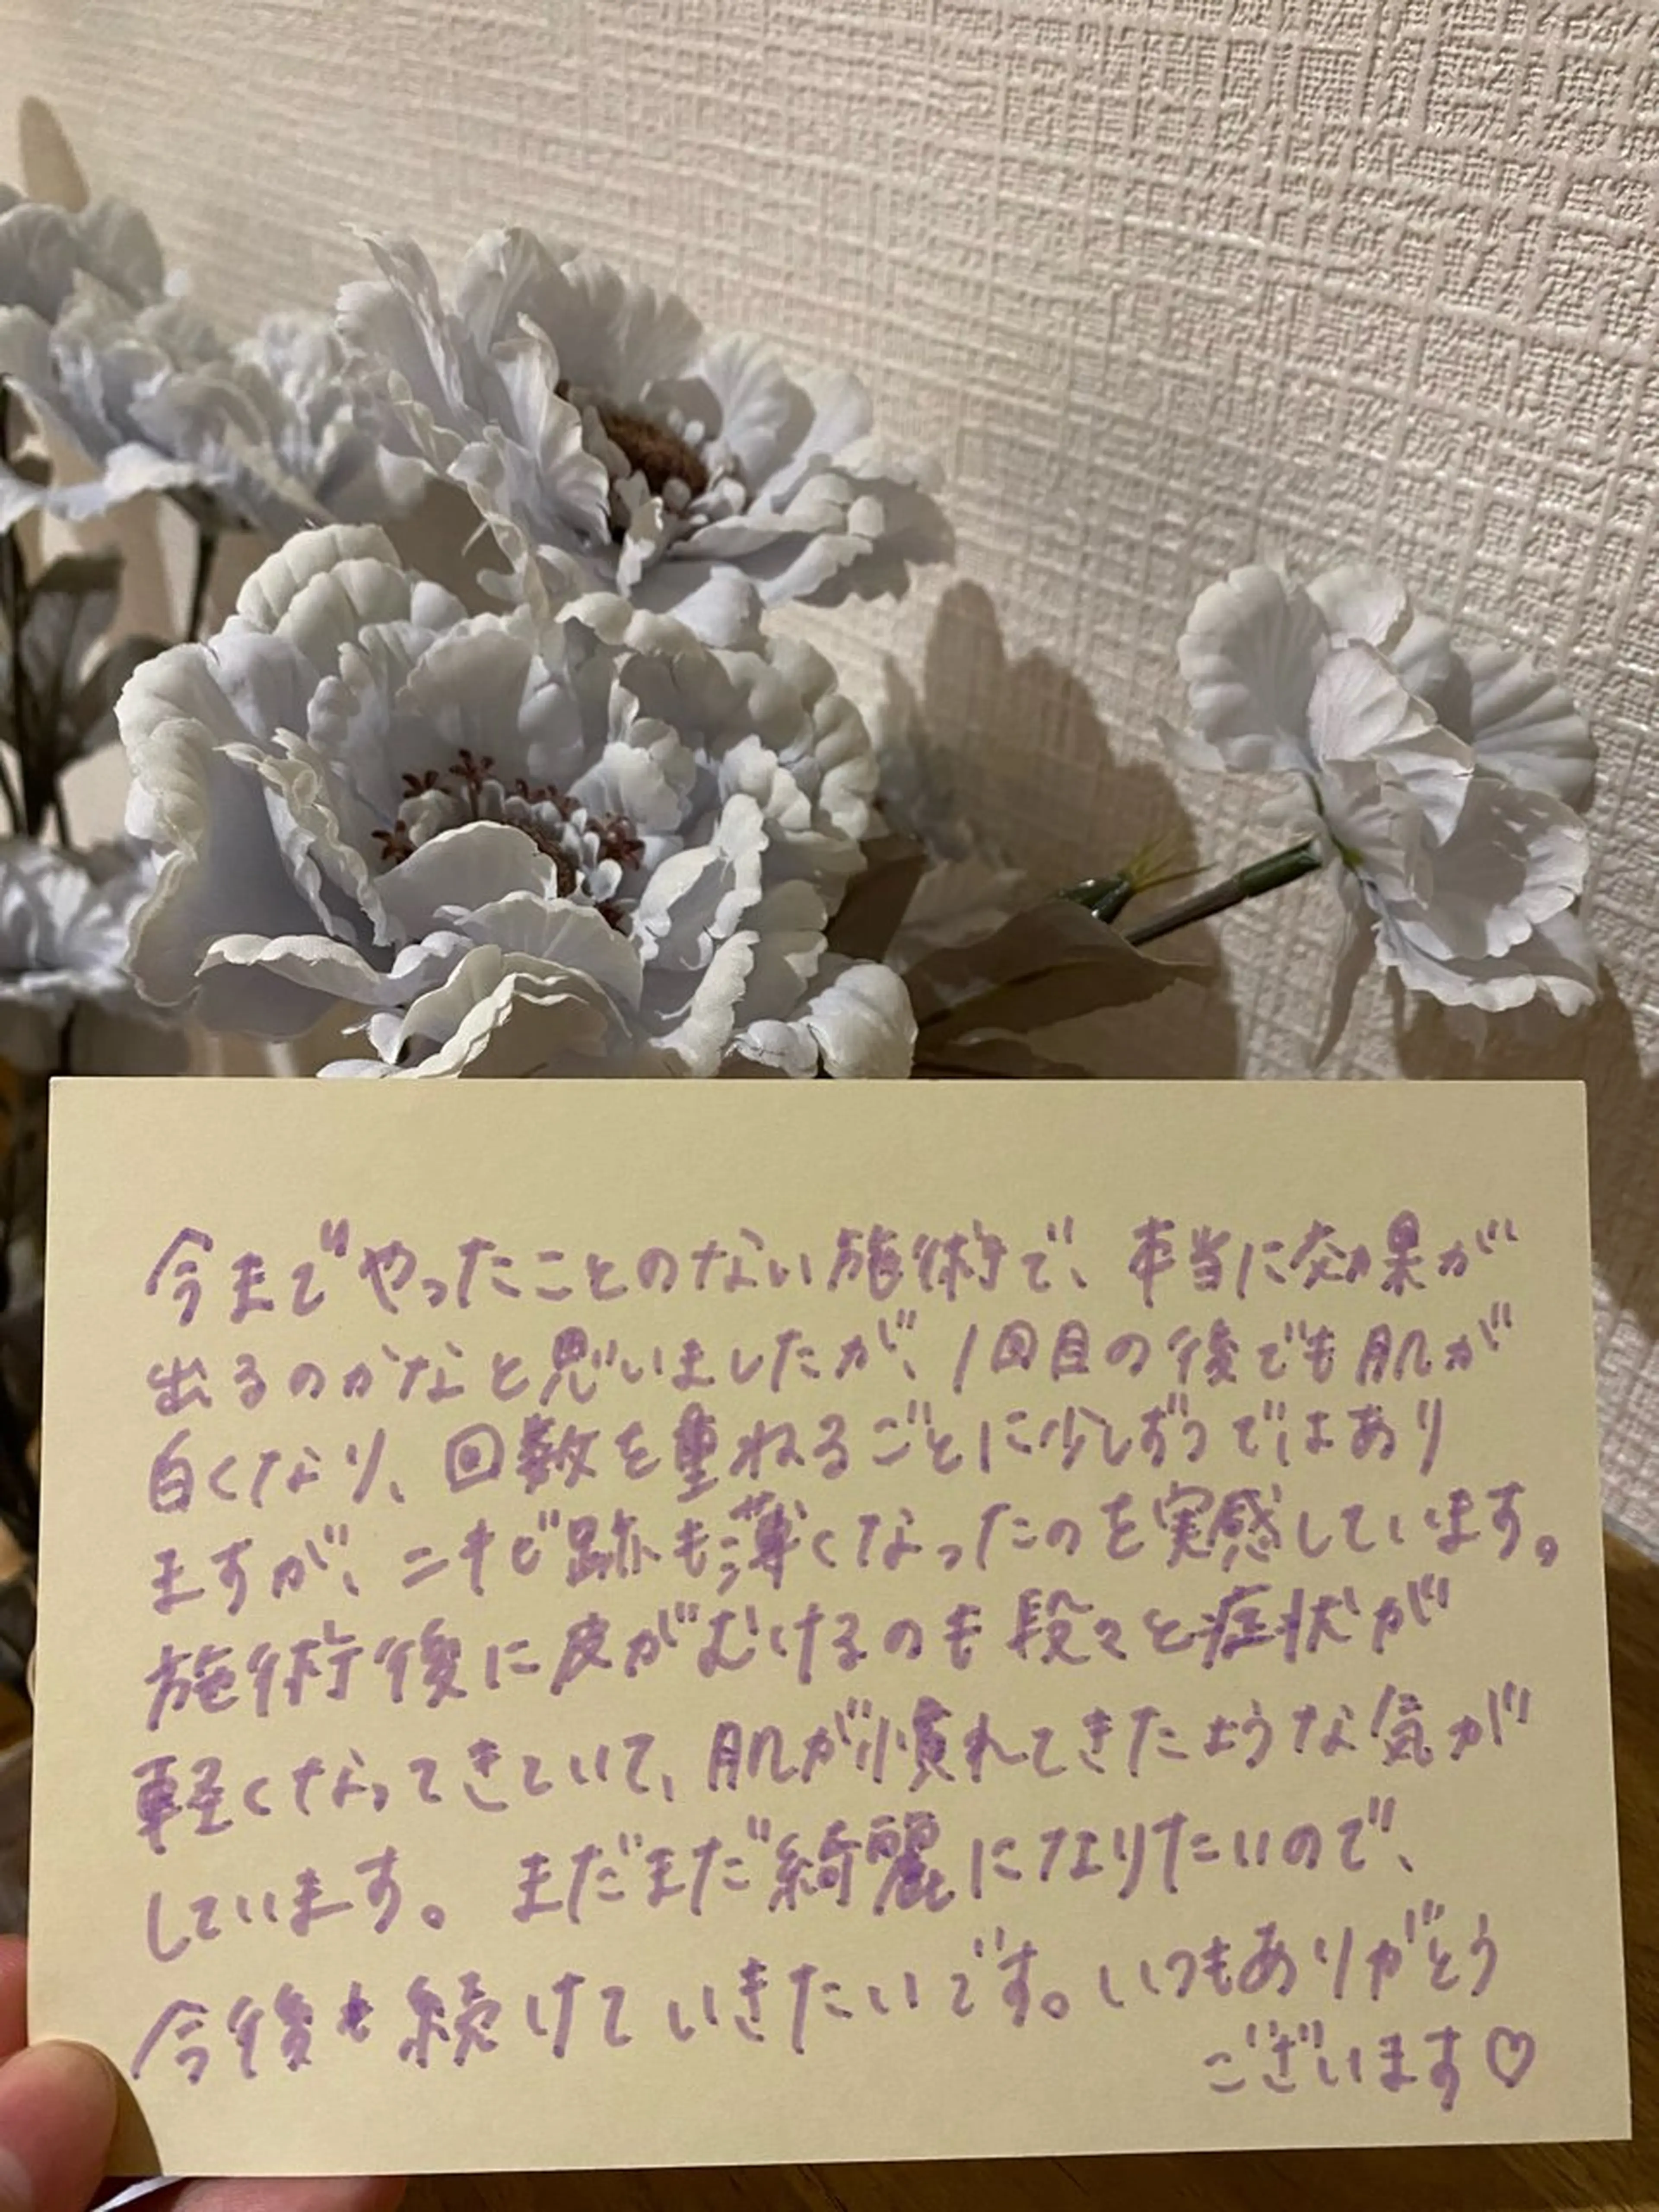 今までやったことのない施術で、本当に効果が
出るのかなと思いましたが、1回目の後でも肌が
白くなり、回数を重ねるごとに少しずつではあり
ますが、ニキビ跡も薄くなったのを実感しています。
施術後に皮がむけるのも段々と症状が
軽くなってきていて、肌が慣れてきたような気が
しています。まだまだ綺麗になりたいので、
今後も続けていきたいです。いつもありがとう
ございます♡